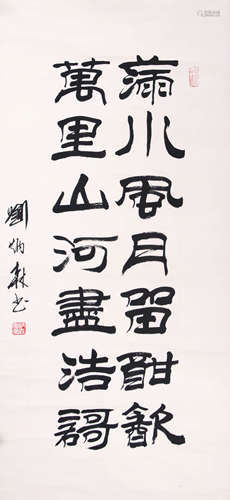 滿川風月留酣㱃
萬里山河盡浩謌
劉炳森书